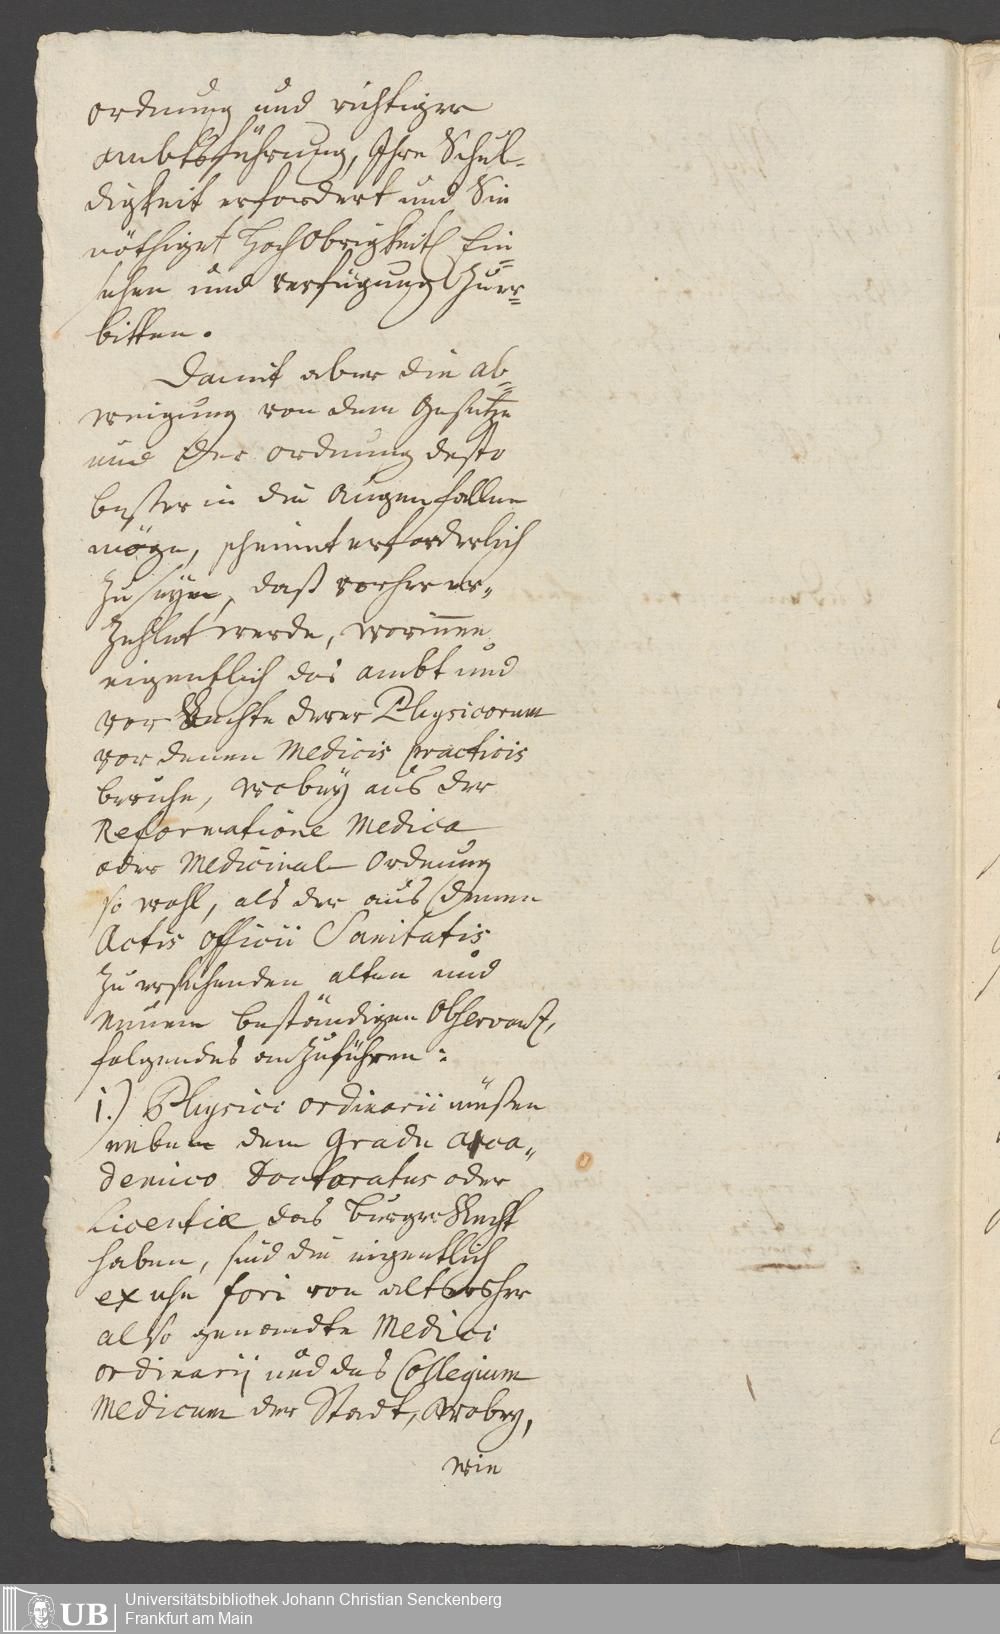 ordnung und richtiger
ambtsführung, Ihre Schul-
digkeit erfordert und Sie
nöthiget Hoch Obrigkeitl. Ein=
sehen und verfügung zu er=
bitten.
Damit aber die ab=
weigung von dem Gesetze
und der ordnung desto
beßer in die Augen fallen
möge, scheinet erforderlich
zu seyn, daß vorher er„
zehlet werde, worinnen
eigentlich das ambt und
vor Rechte derer Physicorum
vor denen Medicis practicis
beruhe, wobey aus der
Reformatione Medica
oder Medicinal Ordnung
so wohl, als der aus denen
Actis officii Sanitatis
zu ersehenden alten und
neuern beständigen Observantz,
folgendes anzuführen:
1.) Physici ordinarii müßen
neben dem Gradu aca„
demico Doctoratus oder
Licentiæ das Burger Recht
haben, sind die eigentlich
ex usu fori von alters her
also genandte Medici
ordinarij und das Collegium
Medicum der Stadt, wobey,
wie
Universitätsbibliothek Johann Christian Senckenberg
Frankfurt am Main
UB